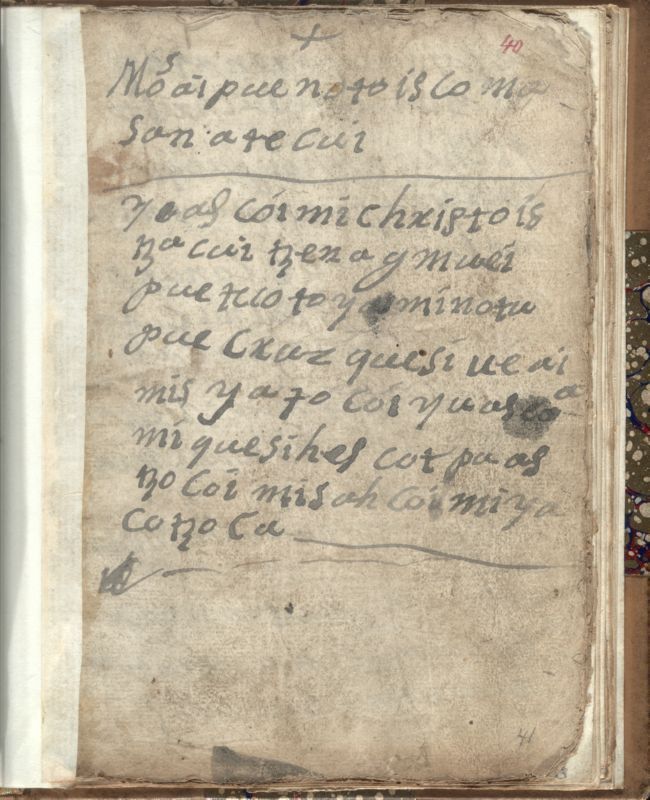 40
Mosai pue no to is co ma
san a te cui
yoas cói mi christo is
tza cui tzen a g muei
pue tcio to ya mi no tu
pue Cruz quesi ue ai
mis ya to cói yuas co a
mi quesihes cot pa as
tzo cói mis ah cói mi ya
co tzo ca
41